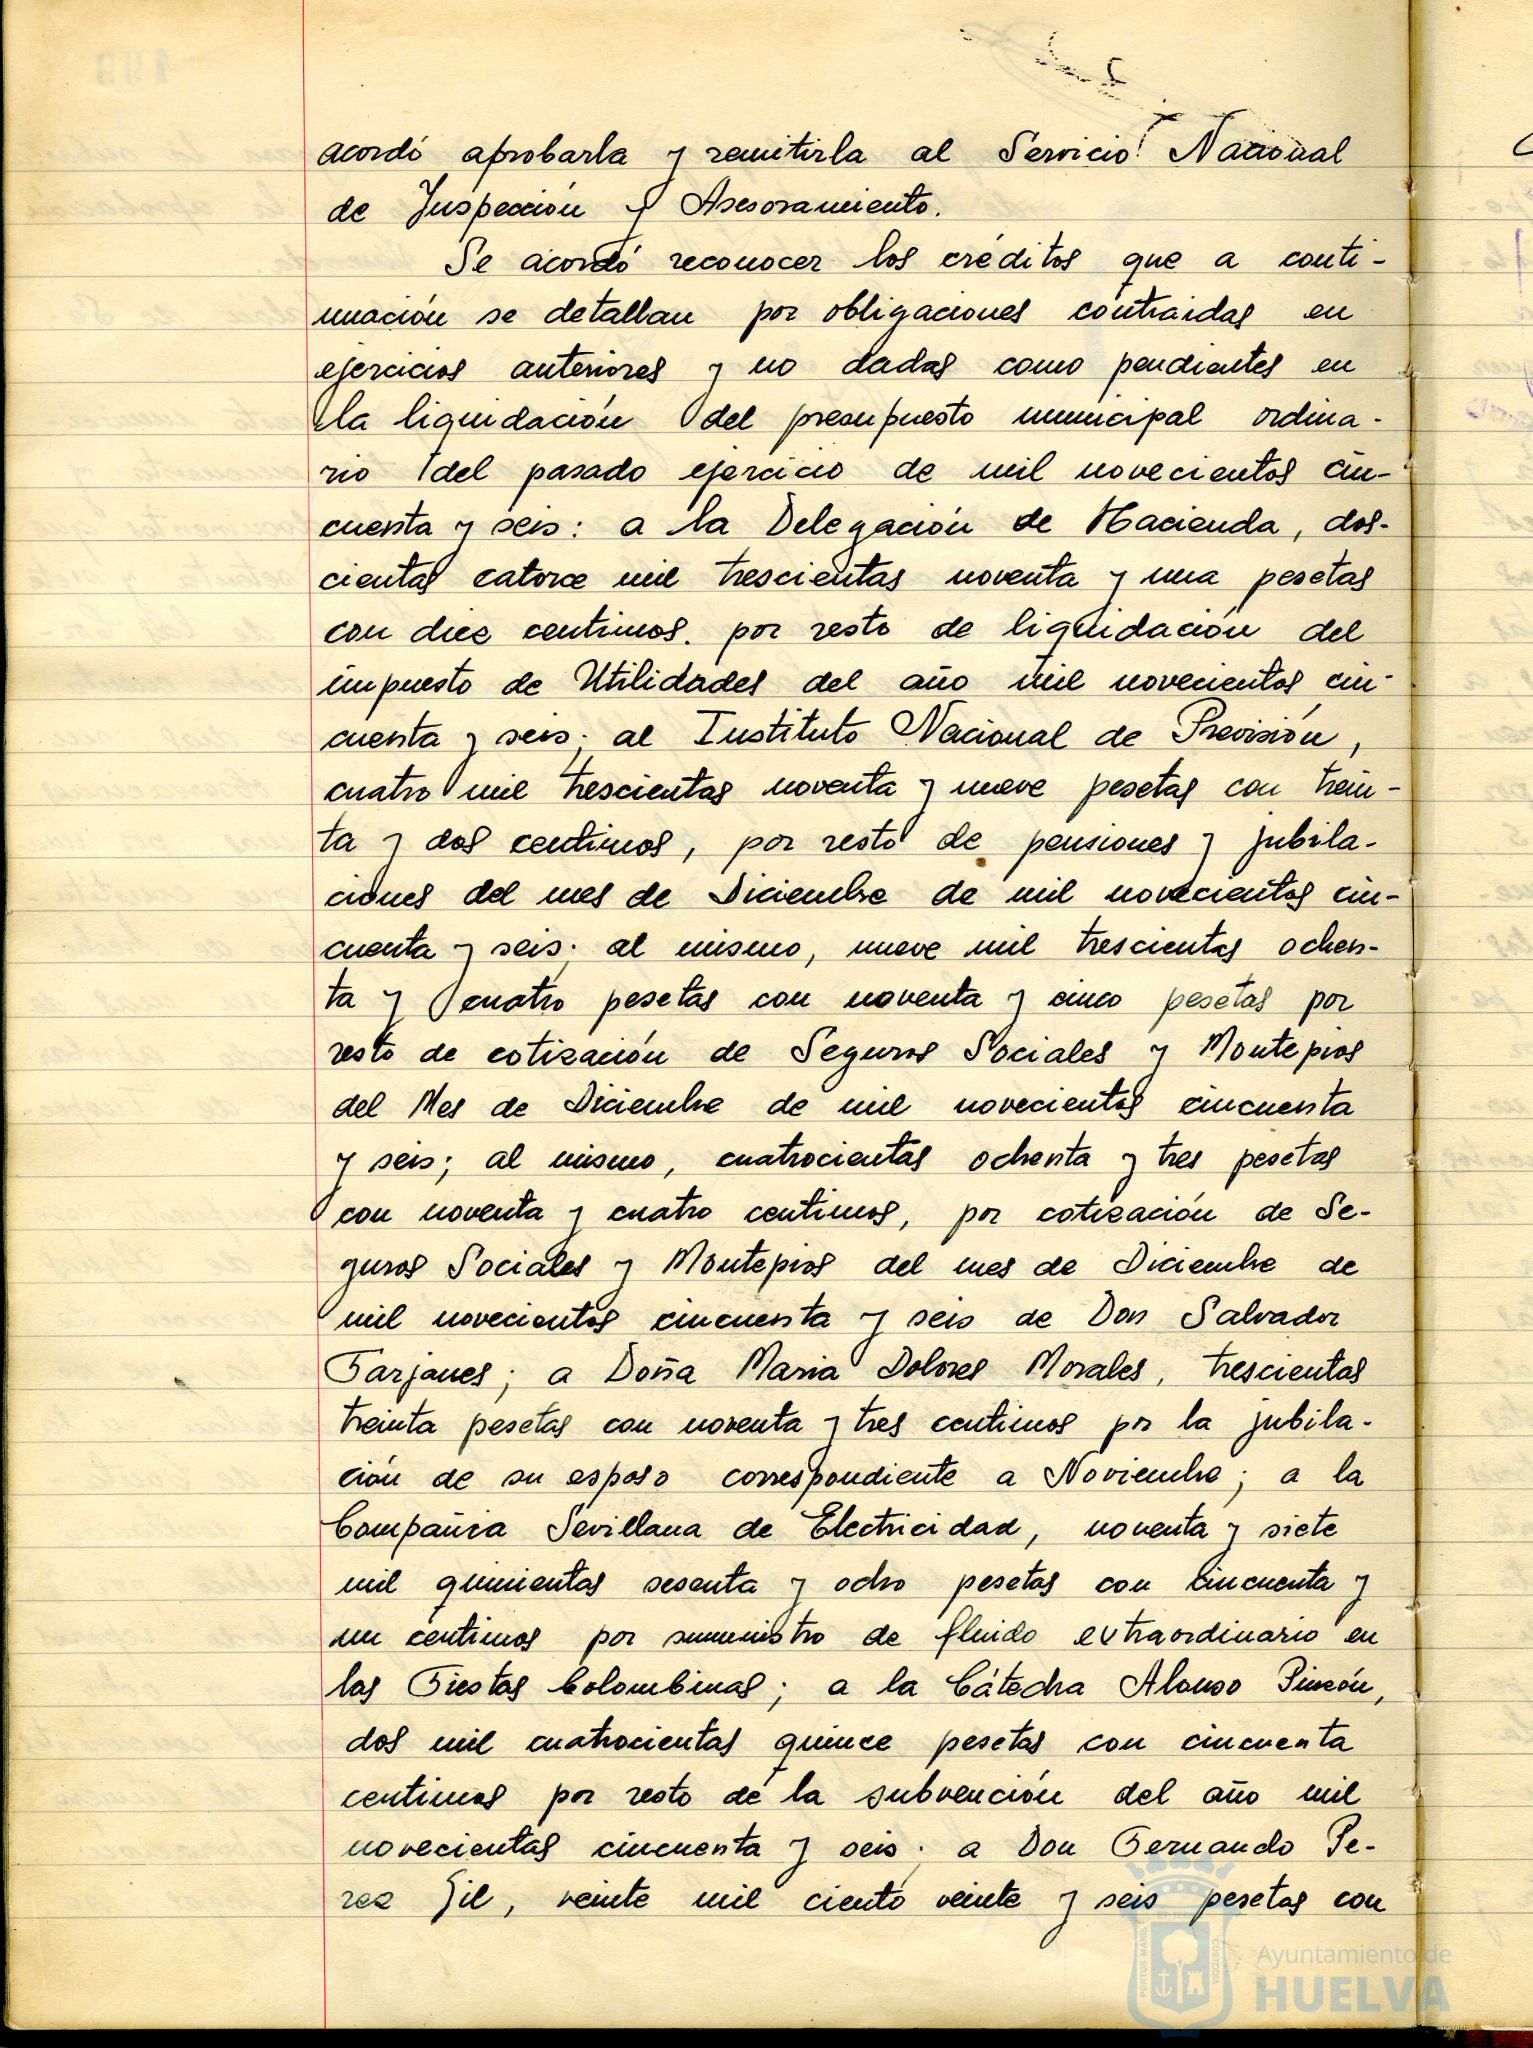 acordó aprobarla y remitirla al Servicio Nacional
de Inspección y Asesoramiento.
Se acordó reconocer los créditos que a conti-
nuación se detallan por obligaciones contraidas en
ejercicios anteriores y no dadas como pendientes en
la liquidación del presupuesto municipal ordina-
rio del pasado ejercicio de mil novecientos cin-
cuenta y seis: a la Delegación de Hacienda, dos-
cientas catorce mil trescientas noventa y una pesetas
con diez centimos. por resto de liquidación del
impuesto de Utilidades del año mil novecientos cin-
cuenta y seis; al Instituto Nacional de Previsión,
cuatro mil trescientas noventa y nueve pesetas con trein-
ta y dos centimos, por resto de pensiones y jubila-
ciones del mes de Diciembre de mil novecientos cin-
cuenta y seis; al mismo, nueve mil trescientas ochen-
ta y cuatro pesetas con noventa y cinco pesetas por
resto de cotización de Seguros Sociales y Montepios
del Mes de Diciembre de mil novecientos cincuenta
y seis; al mismo, cuatrocientas ochenta y tres pesetas
con noventa y cuatro centimos, por cotización de Se-
guros Sociales y Montepios del mes de Diciembre de
mil novecientos cincuenta y seis de Don Salvador
Farjanes; a Doña Maria Dolores Morales, trescientas
treinta pesetas con noventa y tres centimos por la jubila-
ción de su esposo correspondiente a Noviembre; a la
Compañia Sevillana de Electricidad, noventa y siete
mil quinientas sesenta y ocho pesetas con cincuenta y
un centimos por suministro de fluido extraordinario en
las Fiestas Colombinas; a la Cátedra Alonso Pinzón,
dos mil cuatrocientas quince pesetas con cincuenta
centimos por resto de la subvención del año mil
novecientas cincuenta y seis; a Don Fernando Pe-
rez Gil, veinte mil ciento veinte y seis pesetas con
Ayuntamiento de
HUELVA